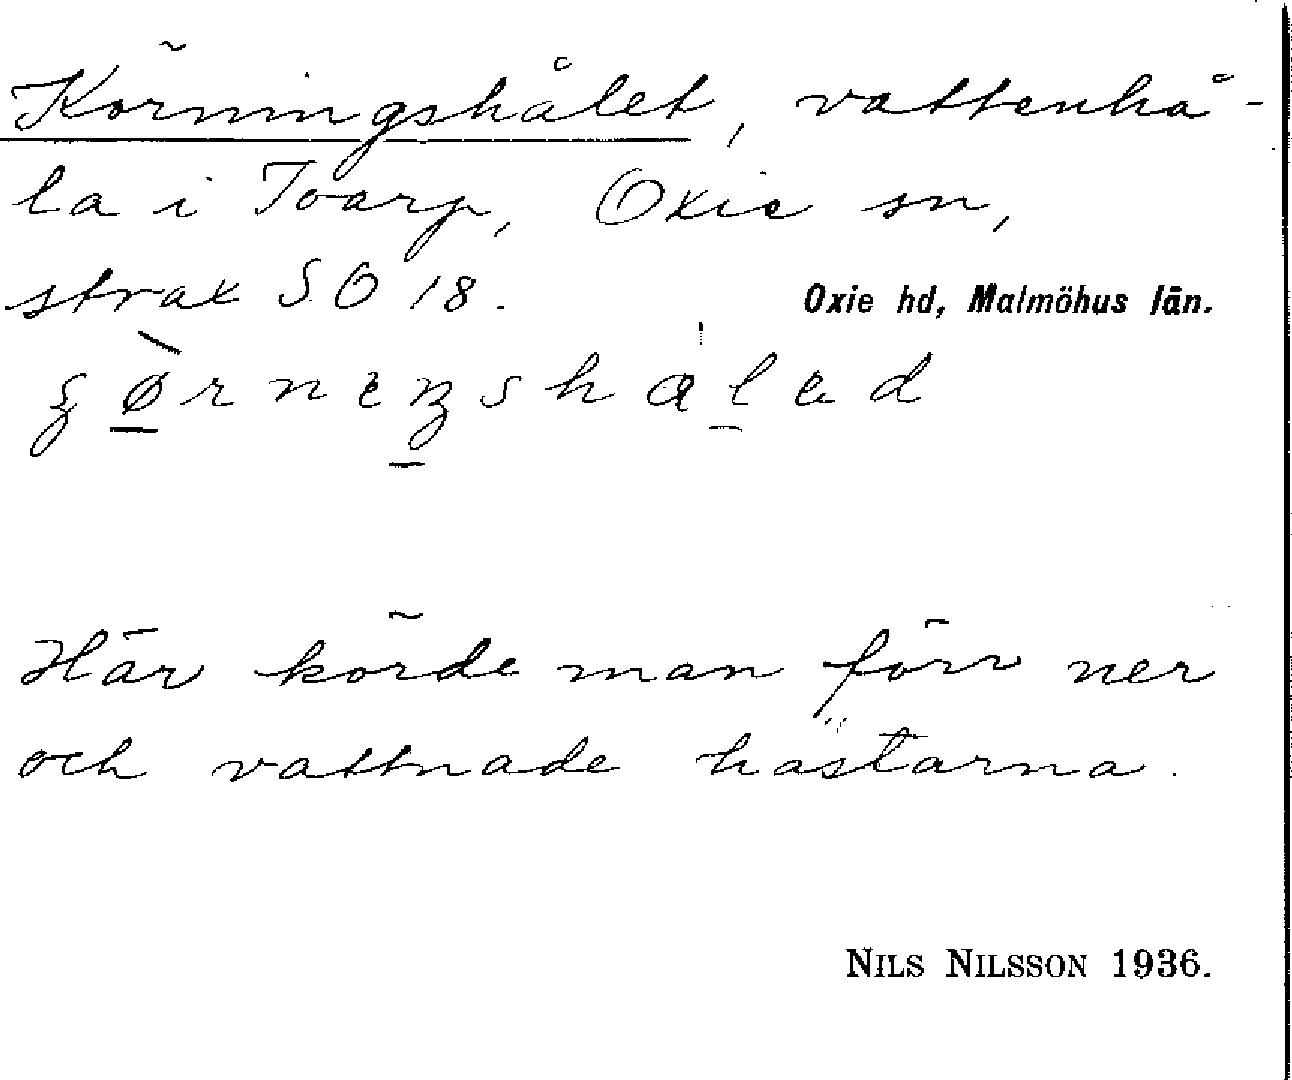 Körningshålet, vattenhå-
la i Toarp, Oxie sn,
strax SO 18.
Oxie hd, Malmöhus län.
Här körde man förr ner
och vattnade hästarna.
NILS NILSSON 1936.